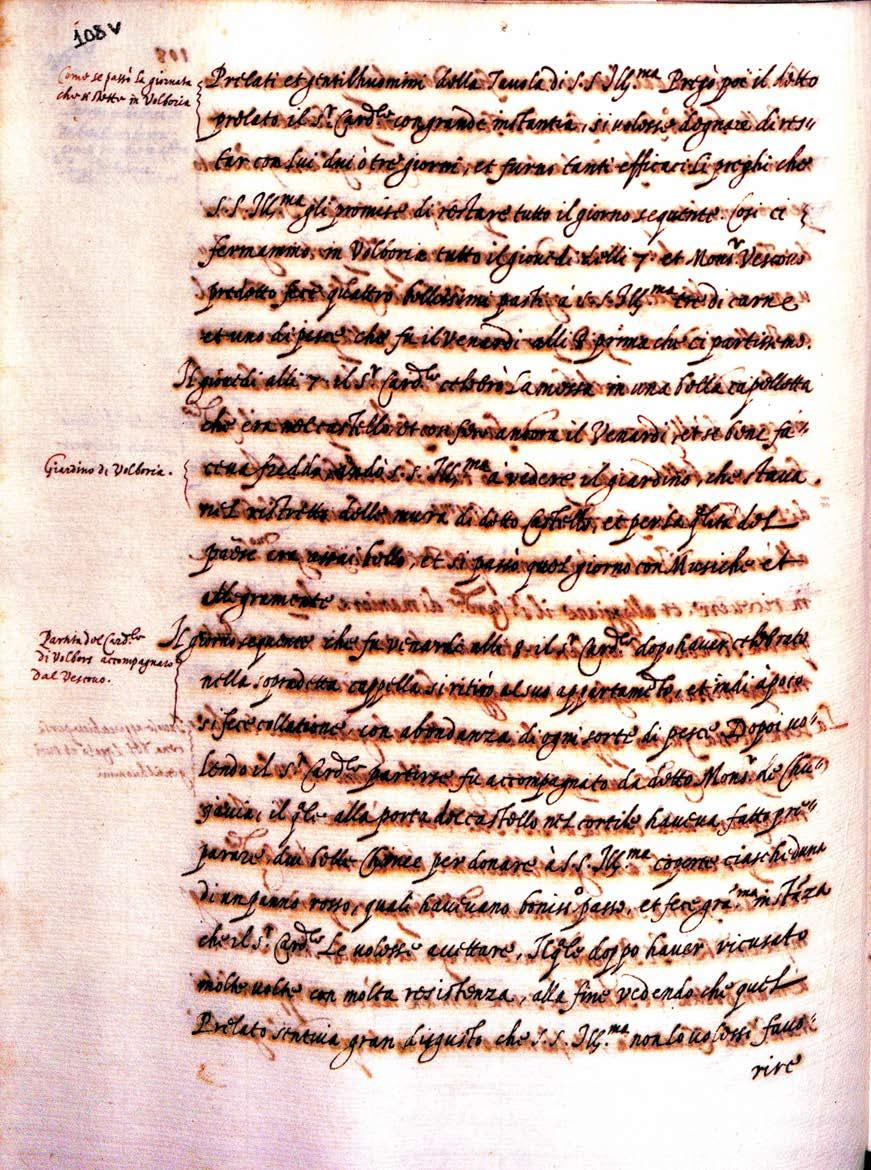 108v
108
Come se passò la giornata
che si stette in Volboria
Prelati et gentilhuomini della Tavola di S.S. Ill.ma Pregò poi il detto
prelato il S.r Card.le con grande instantia, si volesse degnare di res-
tar con lui dui ò tre giorni, et furno tanti efficaci li preghi che
S.S. Ill.ma gli promise di restare tutto il giorno sequente. Cosi ci
fermammo in Volboria tutto il giovedi delli 7. et Mons.r Vescovo
predetto fece quattro bellissimi pasti à S.S. Ill.ma tre di carne
et uno di pesce che fu il Venardi alli 8 prima che ci partissemo.
Il giovedi alli 7. il S.r Card.le celebrò la messa in una bella capelletta
che era nel castello, et cosi fece ancora il Venardi, et se bene fa-
Giardino di Volboria.
ceva freddo, andò S.S. Ill.ma à vedere il giardino, che stava
nel ristretto delle mura di detto Castello, et per la qlità del
paese era assai bello, et si passò quel giorno con Musiche et
allegramente
Partita del Card.le
di Volbors accompagnato
dal Vescovo.
Il giorno sequente che fu venardi alli 8. il S.r Card.le dopo haver celebrato
nella sopradetta cappella si ritirò al suo appartam.to, et indi à poco
si fece collatione con abondanza di ogni sorte di pesce. Dopoi vo-
lendo il S.r Card.le partirse fu accompagnato da detto Mons.r de Cu-
javia, il qle alla porta del castello nel cortile haveva fatto pre-
parare dui belle Chinee per donare à S.S. Ill.ma coperte ciascheduna
di un panno rosso, quali havevano boniss.o passo, et fece gra.ma instãza
che il S.r Card.le Le volesse accettare, Il qle doppo haver ricusato
molte volte con molta resistenza, alla fine vedendo che quel
Prelato sentiva gran disgusto che S.S. Ill.ma non lo volesse favo-
rire